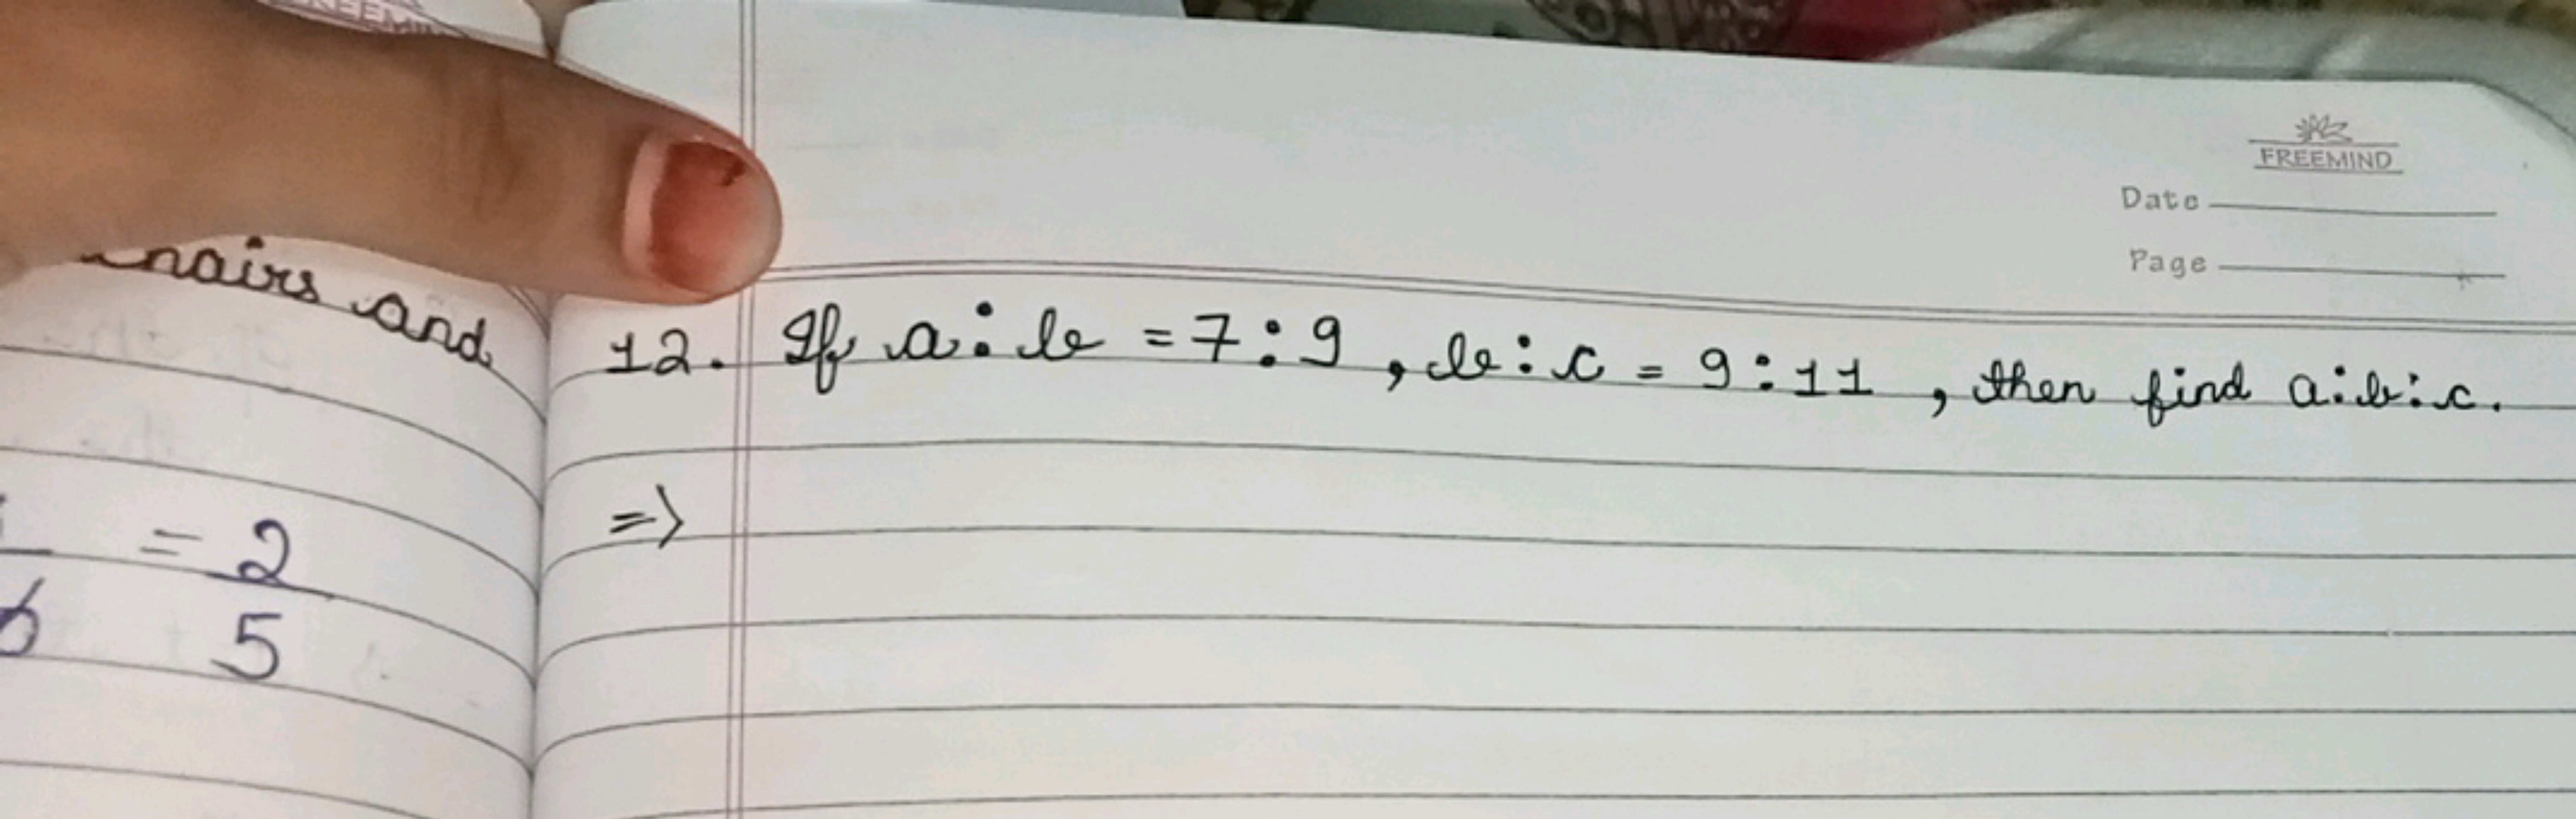 and
= 2
5
FREEMIND
Date
Page
12. If a : b = 7 : 9 , b : c = 9 : 11 , then find a:b:c.
=>